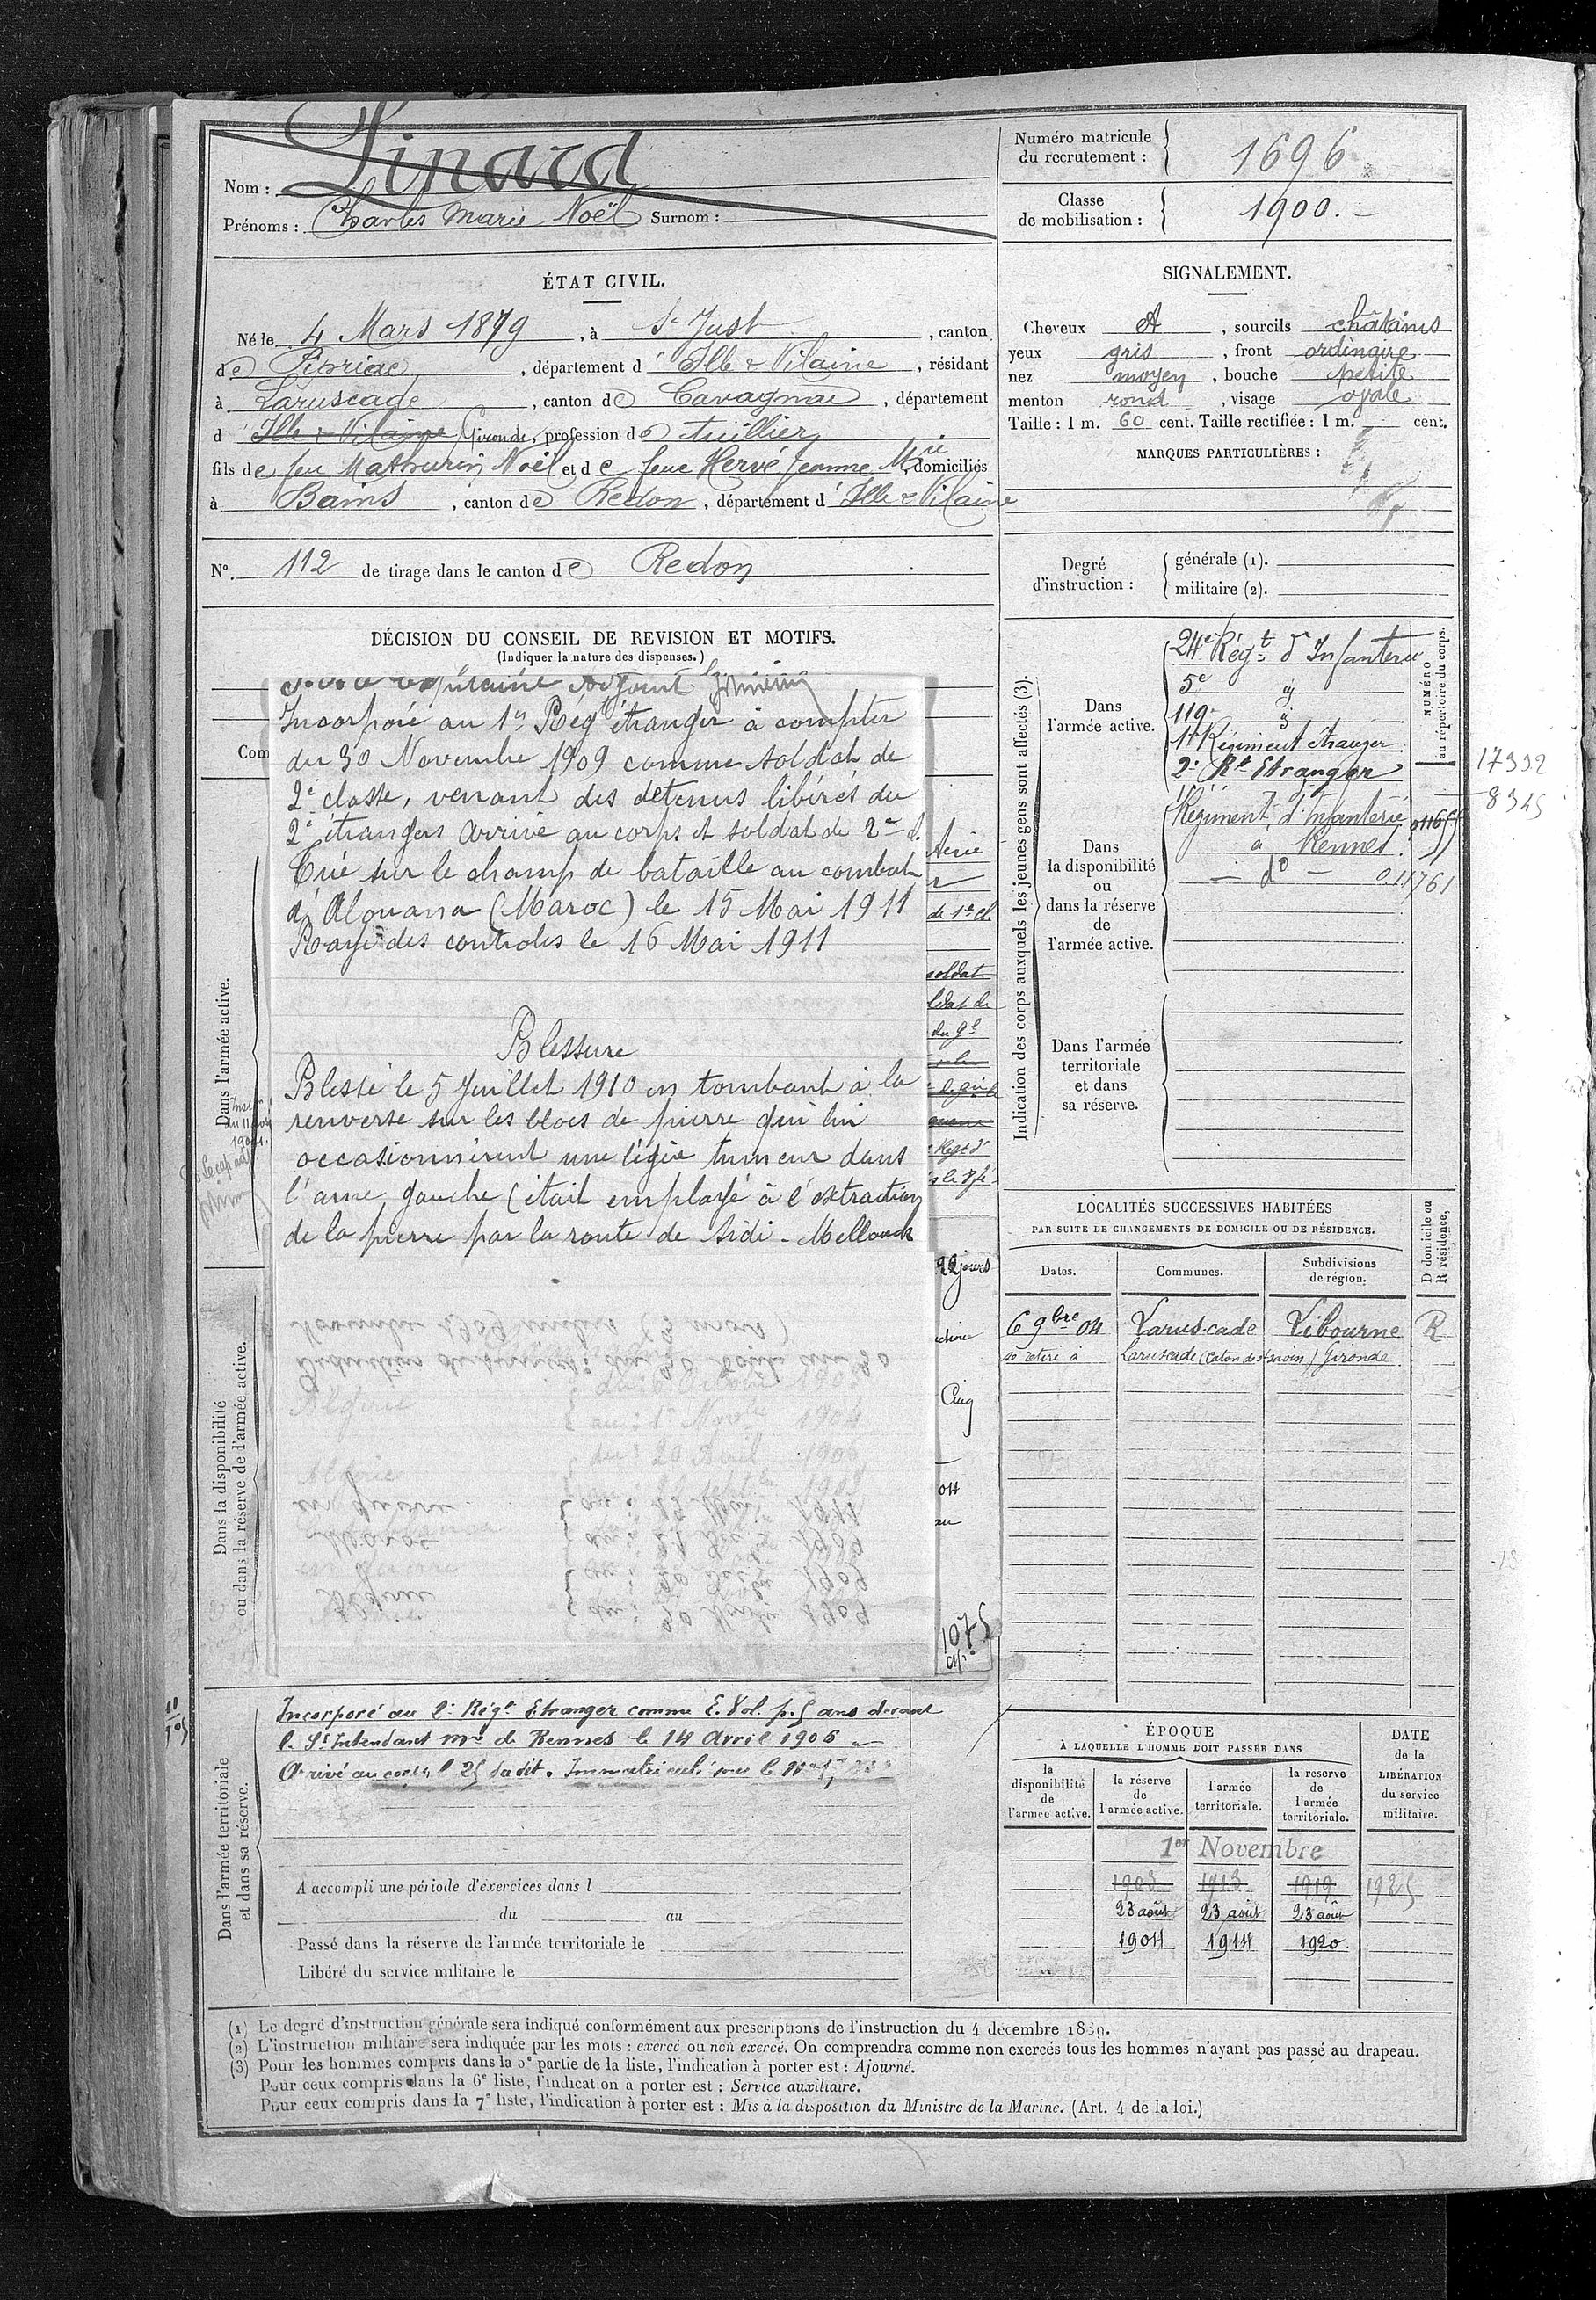 Nom : Pinard
Prénoms : Charles Marie Noël Surnom :
Numéro matricule du recrutement : 1696
Classe de mobilisation : 1900.
ÉTAT CIVIL.
Né le 4 Mars 1879, à St Just, canton
de Pipriac, département d'Ille & Vilaine, résidant
à Laruscade, canton de Cavagnac, département
d Ille & Vilaine Gironde, profession de tuillier
fils de feu Mathurin Noël et de feue Hervé Jeanne Mie, domiciliés
à Bains, canton de Redon, département d'Ille & Vilaine
N°. 112 de tirage dans le canton de Redon
SIGNALEMENT.
Cheveux A, sourcils châtains
yeux gris, front ordinaire
nez moyen, bouche petite
menton rond, visage ovale
Taille : 1 m. 60 cent. Taille rectifiée : 1 m. cent.
MARQUES PARTICULIÈRES :
Degré d'instruction :
générale (1).
militaire (2).
DÉCISION DU CONSEIL DE REVISION ET MOTIFS.
(Indiquer la nature des dispenses.)
Com
Incorporé au 1er Regt étranger à compter
du 30 Novembre 1909 comme soldat de
2e classe, venant des détenus libérés du
2e étrangers arrivé au corps et soldat de 2e cl.
Tué sur le champ de bataille au combat
d'Alouana (Maroc) le 15 Mai 1911
Rayé des controles le 16 Mai 1911
Blessure
Blessé le 5 Juillet 1910 en tombant à la
renverse sur les blocs de pierre qui lui
occasionnèrent une légère tumeur dans
l'aine gauche (était employé à l'extraction
de la pierre par la route de Sidi-Mellouck
de 1e cl.
soldat
ldat de
du 9e
22 jours
Cinq
04
au
1075
Dans l'armée active.
Dans la disponibilité
ou dans la réserve de l'armée active.
Dans l'armée territoriale
et dans sa réserve.
Incorporé au 2e Régt Etranger comme E. Vol. p. 5 ans devant
le St Intendant mre de Rennes le 14 Avril 1906
Arrivé au corps le 25 dudit. Immatriculé sous le
A accompli une période d'exercices dans l
du au
Passé dans la réserve de l'armée territoriale le
Libéré du service militaire le
Indication des corps auxquels les jeunes gens sont affectés (3).
NUMÉRO au répertoire du corps.
Dans l'armée active.
24e Régt d'Infanterie
5e
119e
1er Régiment étranger
2e Rt Etranger
17332
8345
Dans la disponibilité ou dans la réserve de l'armée active.
Régiment d'Infanterie
à Rennes.
— do — 0.11761
Dans l'armée territoriale et dans sa réserve.
LOCALITÉS SUCCESSIVES HABITÉES
PAR SUITE DE CHANGEMENTS DE DOMICILE OU DE RÉSIDENCE.
Dates. Communes. Subdivisions de région. D domicile ou R résidence.
6 9bre 04 Laruscade Libourne R
se retire à Laruscade (Caton de St Savin) Gironde
ÉPOQUE
À LAQUELLE L'HOMME DOIT PASSER DANS
la disponibilité de l'armée active. la réserve de l'armée active. l'armée territoriale. la reserve de l'armée territoriale.
DATE de la LIBÉRATION du service militaire.
1er Novembre
1903 1913 1919 1925
23 août 23 août 23 août
1904 1914 1920.
(1) Le degré d'instruction générale sera indiqué conformément aux prescriptions de l'instruction du 4 décembre 1889.
(2) L'instruction militaire sera indiquée par les mots : exercé ou non exercé. On comprendra comme non exercés tous les hommes n'ayant pas passé au drapeau.
(3) Pour les hommes compris dans la 5e partie de la liste, l'indication à porter est : Ajourné.
Pour ceux compris dans la 6e liste, l'indication à porter est : Service auxiliaire.
Pour ceux compris dans la 7e liste, l'indication à porter est : Mis à la disposition du Ministre de la Marine. (Art. 4 de la loi.)